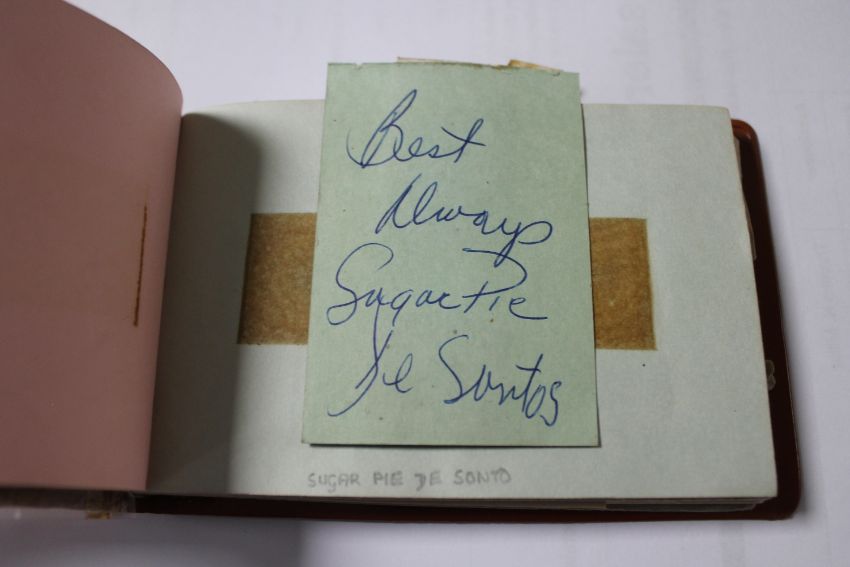 Best
Always
Sugar Pie
De Santos
SUGAR PIE DE SONTO